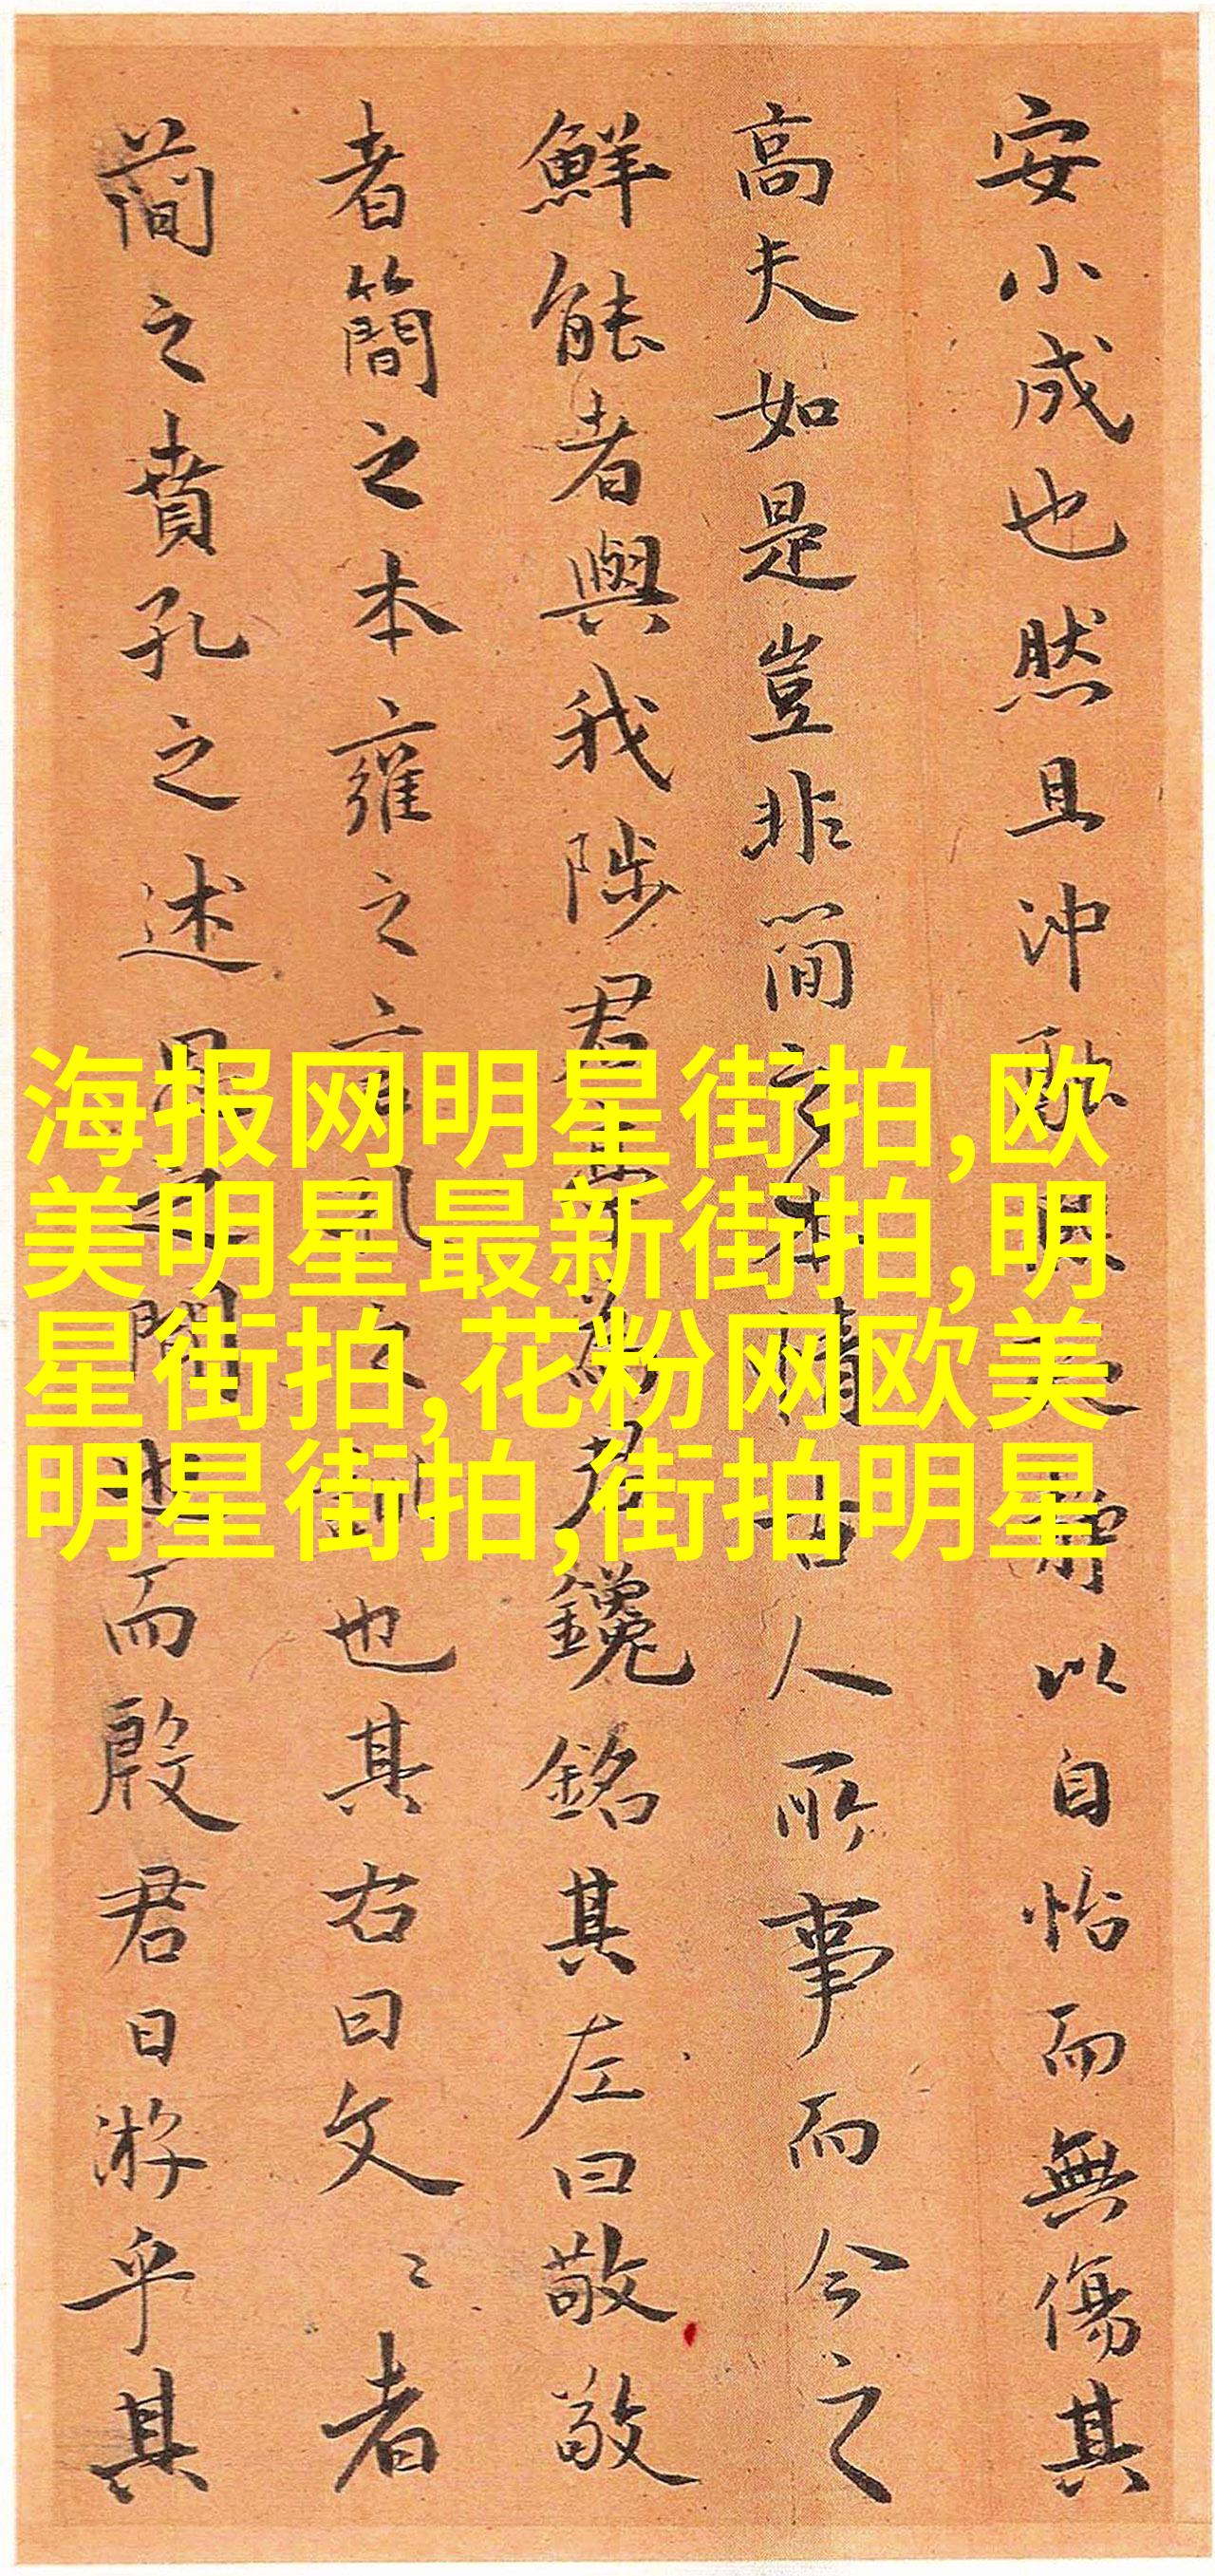 安小成也然且冲融與之靜以自怡而無傷其
高夫如是豈非簡之本情古人所事而今之
鮮能者與我陟君為君鑱銘其左曰敬敬
者簡之本雍之言孔之訓也其右曰文〻者
蕳之賁孔之述思之聞也而殷君日游乎其
海报网明星街拍,欧
美明星最新街拍,明
星街拍,花粉网欧美
明星街拍,街拍明星